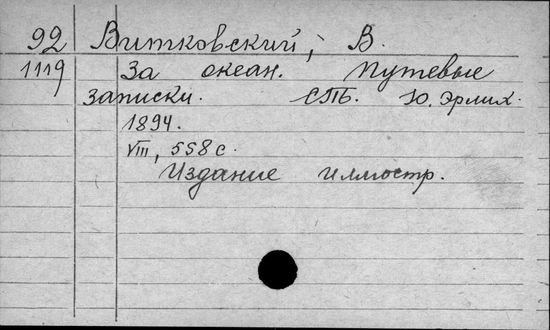 92 Витковский, В.
1119 За океан. Путевые
записки. СПБ. Ю. Эрлих.
1894.
VIII, 558 с.
Издание иллюстр.